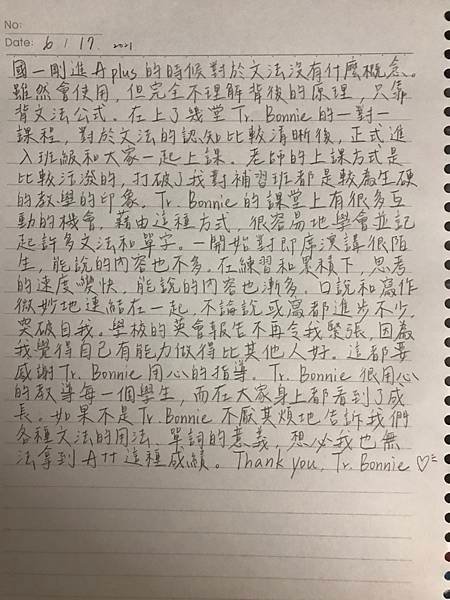 No:
Date: 6 / 17. 2021
國一剛進A plus的時候對於文法沒有什麼概念。
雖然會使用,但完全不理解背後的原理,只靠
背文法公式。在上了幾堂Tr. Bonnie的一對一
課程,對於文法的認知比較清晰後,正式進
入班級和大家一起上課。老師的上課方式是
比較活潑的,打破了我對補習班都是較為生硬
的教學的印象。Tr. Bonnie的課堂上有很多互
動的機會,藉由這種方式,很容易地學會並記
起許多文法和單字。一開始對即席演講很陌
生,能說的內容也不多。在練習和累積下,思考
的速度變快,能說的內容也漸多。口說和寫作
微妙地連結在一起,不論說或寫都進步不少,
突破自我。學校的英會報告不再令我緊張,因為
我覺得自己有能力做得比其他人好。這都要
感謝Tr. Bonnie用心的指導。Tr. Bonnie很用心
的教導每一個學生,而在大家身上都看到了成
長。如果不是Tr. Bonnie不厭其煩地告訴我們
各種文法的用法、單詞的意義,想必我也無
法拿到A++這種成績。Thank you, Tr. Bonnie♡